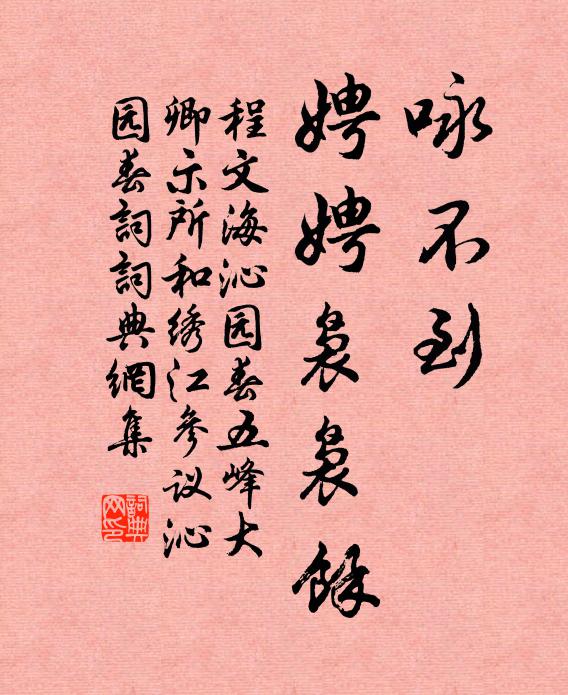 咏不到
娉娉袅袅馀
程文海沁园春五峰大
卿示所和绣江参议沁
园春詞詞典網集
詞典网印